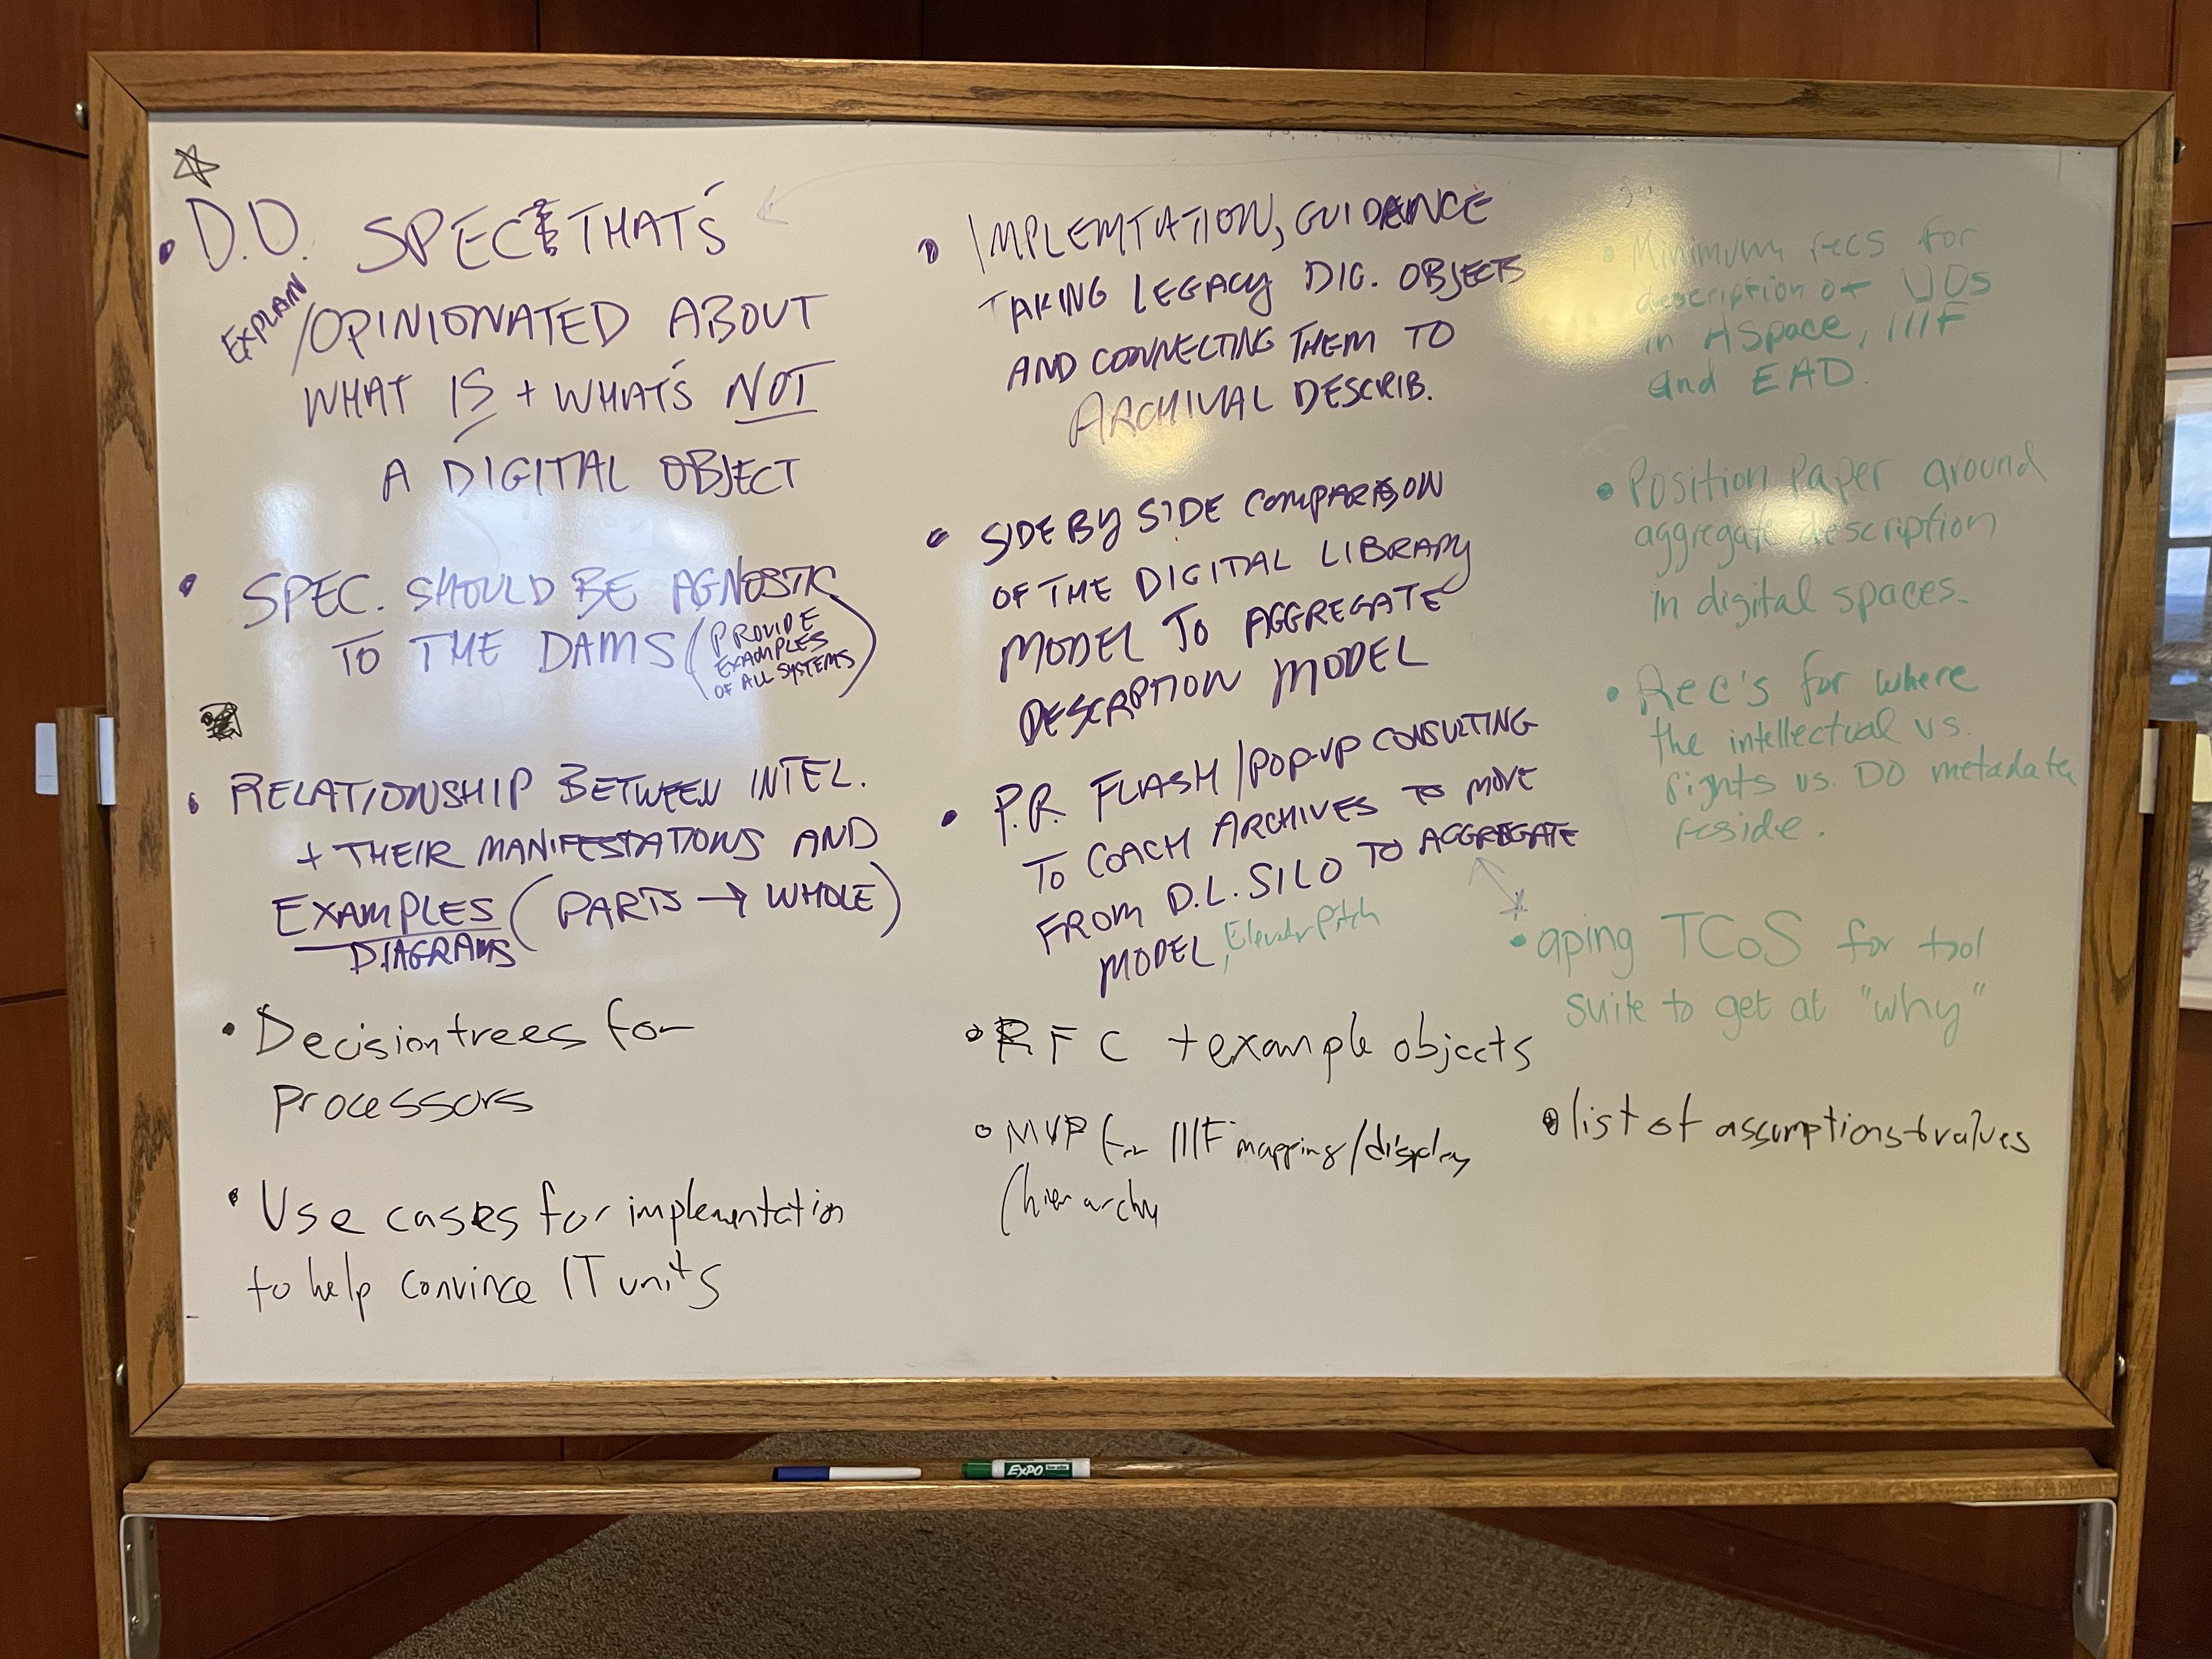 • D.O. SPEC THAT'S
EXPLAIN
/OPINIONATED ABOUT
WHAT IS + WHAT'S NOT
A DIGITAL OBJECT
• SPEC. SHOULD BE AGNOSTIC
TO THE DAMS (PROVIDE
EXAMPLES
OF ALL SYSTEMS)
• RELATIONSHIP BETWEEN INTEL.
+ THEIR MANIFESTATIONS AND
EXAMPLES (PARTS → WHOLE)
DIAGRAMS
• Decision trees for
processors
• Use cases for implementation
to help convince IT units
• IMPLEMTATION, GUIDENCE
TAKING LEGACY DIG. OBJECTS
AND CONNECTING THEM TO
ARCHIVAL DESCRIB.
• SIDE BY SIDE COMPARISON
OF THE DIGITAL LIBRARY
MODEL TO AGGREGATE
DESCRIPTION MODEL
• P.R. FLASH/POP-UP CONSULTING
TO COACH ARCHIVES TO MOVE
FROM D.L. SILO TO AGGREGATE
MODEL, Elevator Pitch
• RFC + example objects
• MVP for IIIF mapping/display
/hierarchy
• Minimum recs for
description of DOs
in ASpace, IIIF
and EAD.
• Position Paper around
aggregate description
in digital spaces.
• Rec's for where
the intellectual vs.
rights vs. DO metadata
reside.
• aping TCoS for tool
suite to get at "why"
• list of assumptions + values
EXPO